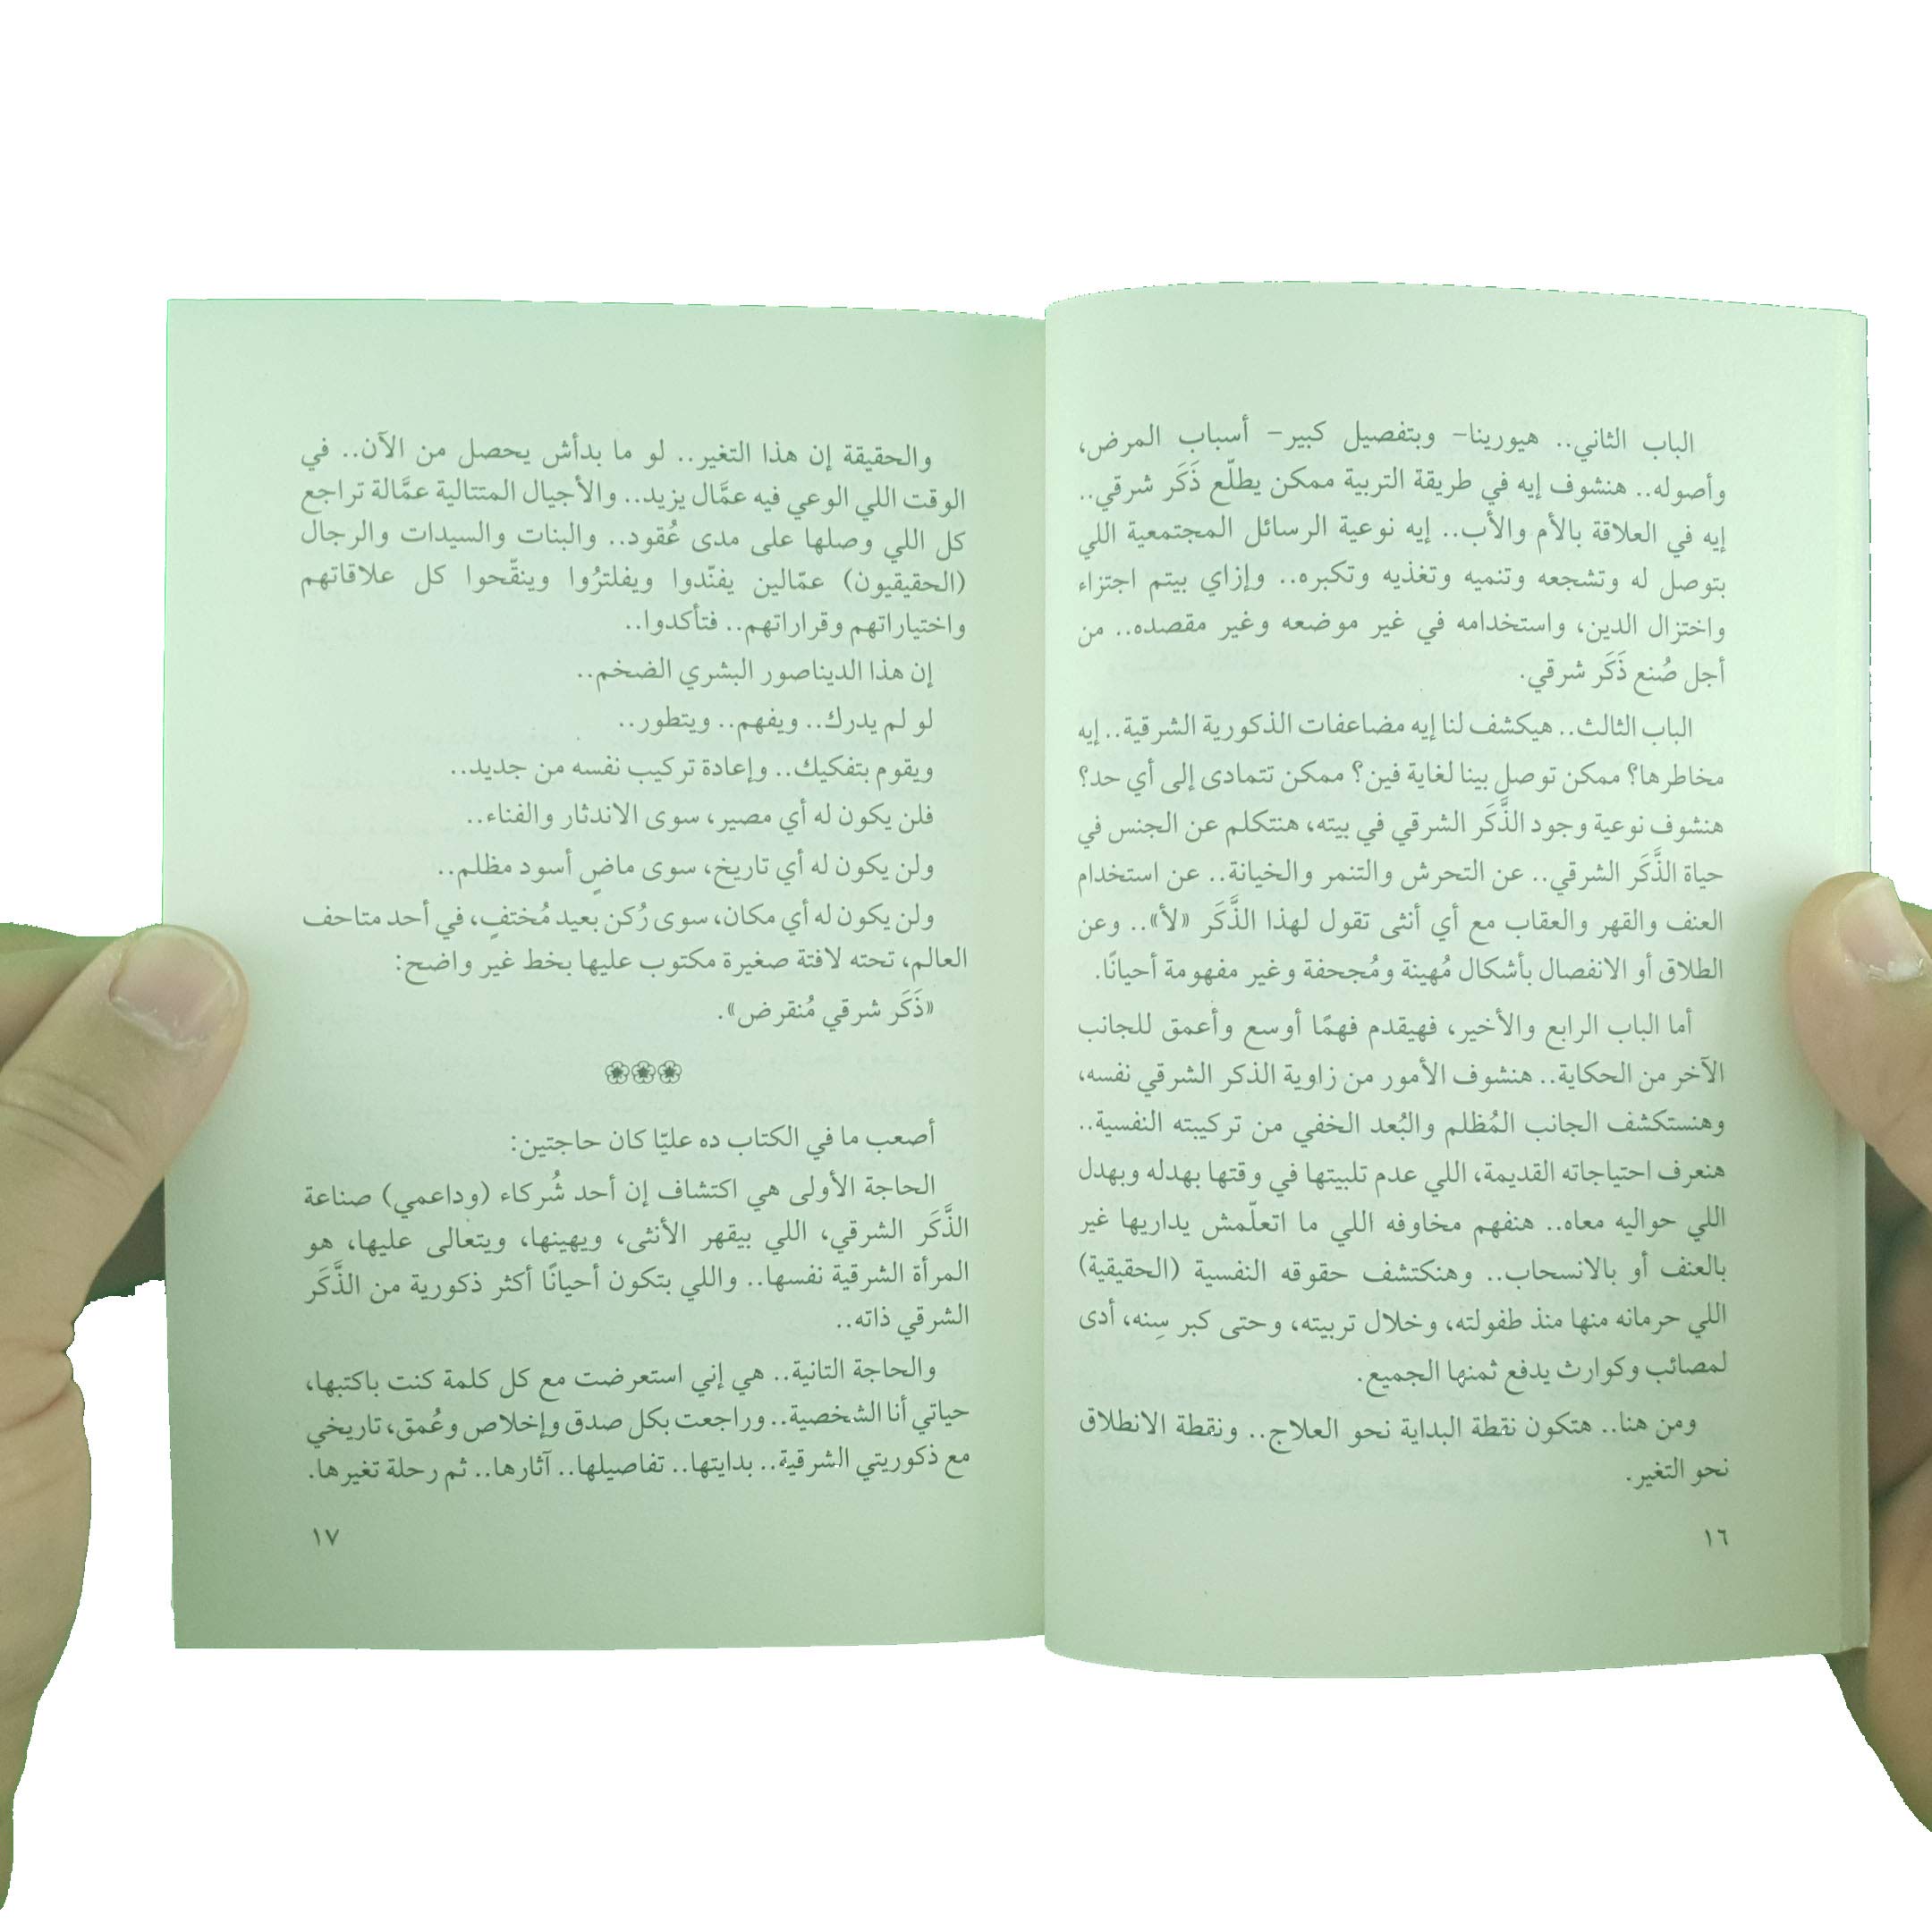 الباب الثاني.. هيورينا- وبتفصيل كبير- أسباب المرض،
وأصوله.. هنشوف إيه في طريقة التربية ممكن يطلّع ذَكَر شرقي..
إيه في العلاقة بالأم والأب.. إيه نوعية الرسائل المجتمعية اللي
بتوصل له وتشجعه وتنميه وتغذيه وتكبره.. وإزاي بيتم اجتزاء
واختزال الدين، واستخدامه في غير موضعه وغير مقصده.. من
أجل صُنع ذَكَر شرقي.
الباب الثالث.. هيكشف لنا إيه مضاعفات الذكورية الشرقية.. إيه
مخاطرها؟ ممكن توصل بينا لغاية فين؟ ممكن تتمادى إلى أي حد؟
هنشوف نوعية وجود الذَّكَر الشرقي في بيته، هنتكلم عن الجنس في
حياة الذَّكَر الشرقي.. عن التحرش والتنمر والخيانة.. عن استخدام
العنف والقهر والعقاب مع أي أنثى تقول لهذا الذَّكَر «لأ».. وعن
الطلاق أو الانفصال بأشكال مُهينة ومُجحفة وغير مفهومة أحيانًا.
أما الباب الرابع والأخير، فهيقدم فهمًا أوسع وأعمق للجانب
الآخر من الحكاية.. هنشوف الأمور من زاوية الذكر الشرقي نفسه،
وهنستكشف الجانب المُظلم والبُعد الخفي من تركيبته النفسية..
هنعرف احتياجاته القديمة، اللي عدم تلبيتها في وقتها بهدله وبهدل
اللي حواليه معاه.. هنفهم مخاوفه اللي ما اتعلّمش يداريها غير
بالعنف أو بالانسحاب.. وهنكتشف حقوقه النفسية (الحقيقية)
اللي حرمانه منها منذ طفولته، وخلال تربيته، وحتى كبر سِنه، أدى
لمصائب وكوارث يدفع ثمنها الجميع.
ومن هنا.. هتكون نقطة البداية نحو العلاج.. ونقطة الانطلاق
نحو التغير.
١٦
والحقيقة إن هذا التغير.. لو ما بدأش يحصل من الآن.. في
الوقت اللي الوعي فيه عمَّال يزيد.. والأجيال المتتالية عمَّالة تراجع
كل اللي وصلها على مدى عُقود.. والبنات والسيدات والرجال
(الحقيقيون) عمّالين يفنّدوا ويفلترُوا وينقّحوا كل علاقاتهم
واختياراتهم وقراراتهم.. فتأكدوا..
إن هذا الديناصور البشري الضخم..
لو لم يدرك.. ويفهم.. ويتطور..
ويقوم بتفكيك.. وإعادة تركيب نفسه من جديد..
فلن يكون له أي مصير، سوى الاندثار والفناء..
ولن يكون له أي تاريخ، سوى ماضٍ أسود مظلم..
ولن يكون له أي مكان، سوى رُكن بعيد مُختفٍ، في أحد متاحف
العالم، تحته لافتة صغيرة مكتوب عليها بخط غير واضح:
«ذَكَر شرقي مُنقرض».
أصعب ما في الكتاب ده عليّا كان حاجتين:
الحاجة الأولى هي اكتشاف إن أحد شُركاء (وداعمي) صناعة
الذَّكَر الشرقي، اللي بيقهر الأنثى، ويهينها، ويتعالى عليها، هو
المرأة الشرقية نفسها.. واللي بتكون أحيانًا أكثر ذكورية من الذَّكَر
الشرقي ذاته..
والحاجة التانية.. هي إني استعرضت مع كل كلمة كنت باكتبها،
حياتي أنا الشخصية.. وراجعت بكل صدق وإخلاص وعُمق، تاريخي
مع ذكوريتي الشرقية.. بدايتها.. تفاصيلها.. آثارها.. ثم رحلة تغيرها.
١٧